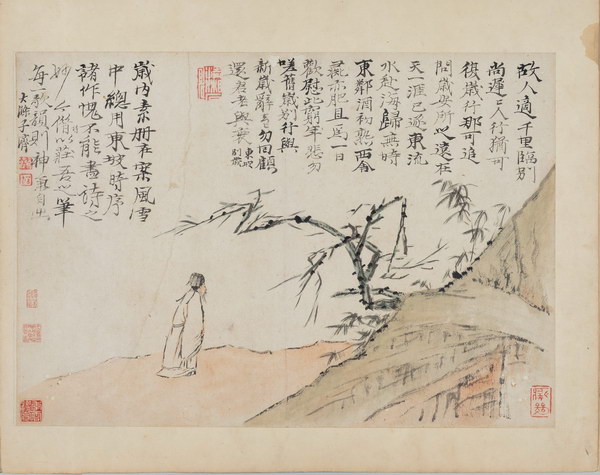 故人適千里臨別
尚遲〻人行猶可
復歲行那可追
問歲安所之遠在
天一涯已逐東流
水赴海歸無時
東鄰酒初熟西舍
彘亦肥且為一日
歡慰此窮年悲勿
嗟舊歲別行與
新歲辭去〻勿回顧
還君老與衰
東坡
別歲
歲內素册在案風雪
中總用東坡時序
諸作愧不能盡詩之
妙今借以莊吾心筆
每一歌頌則神
大滌子濟